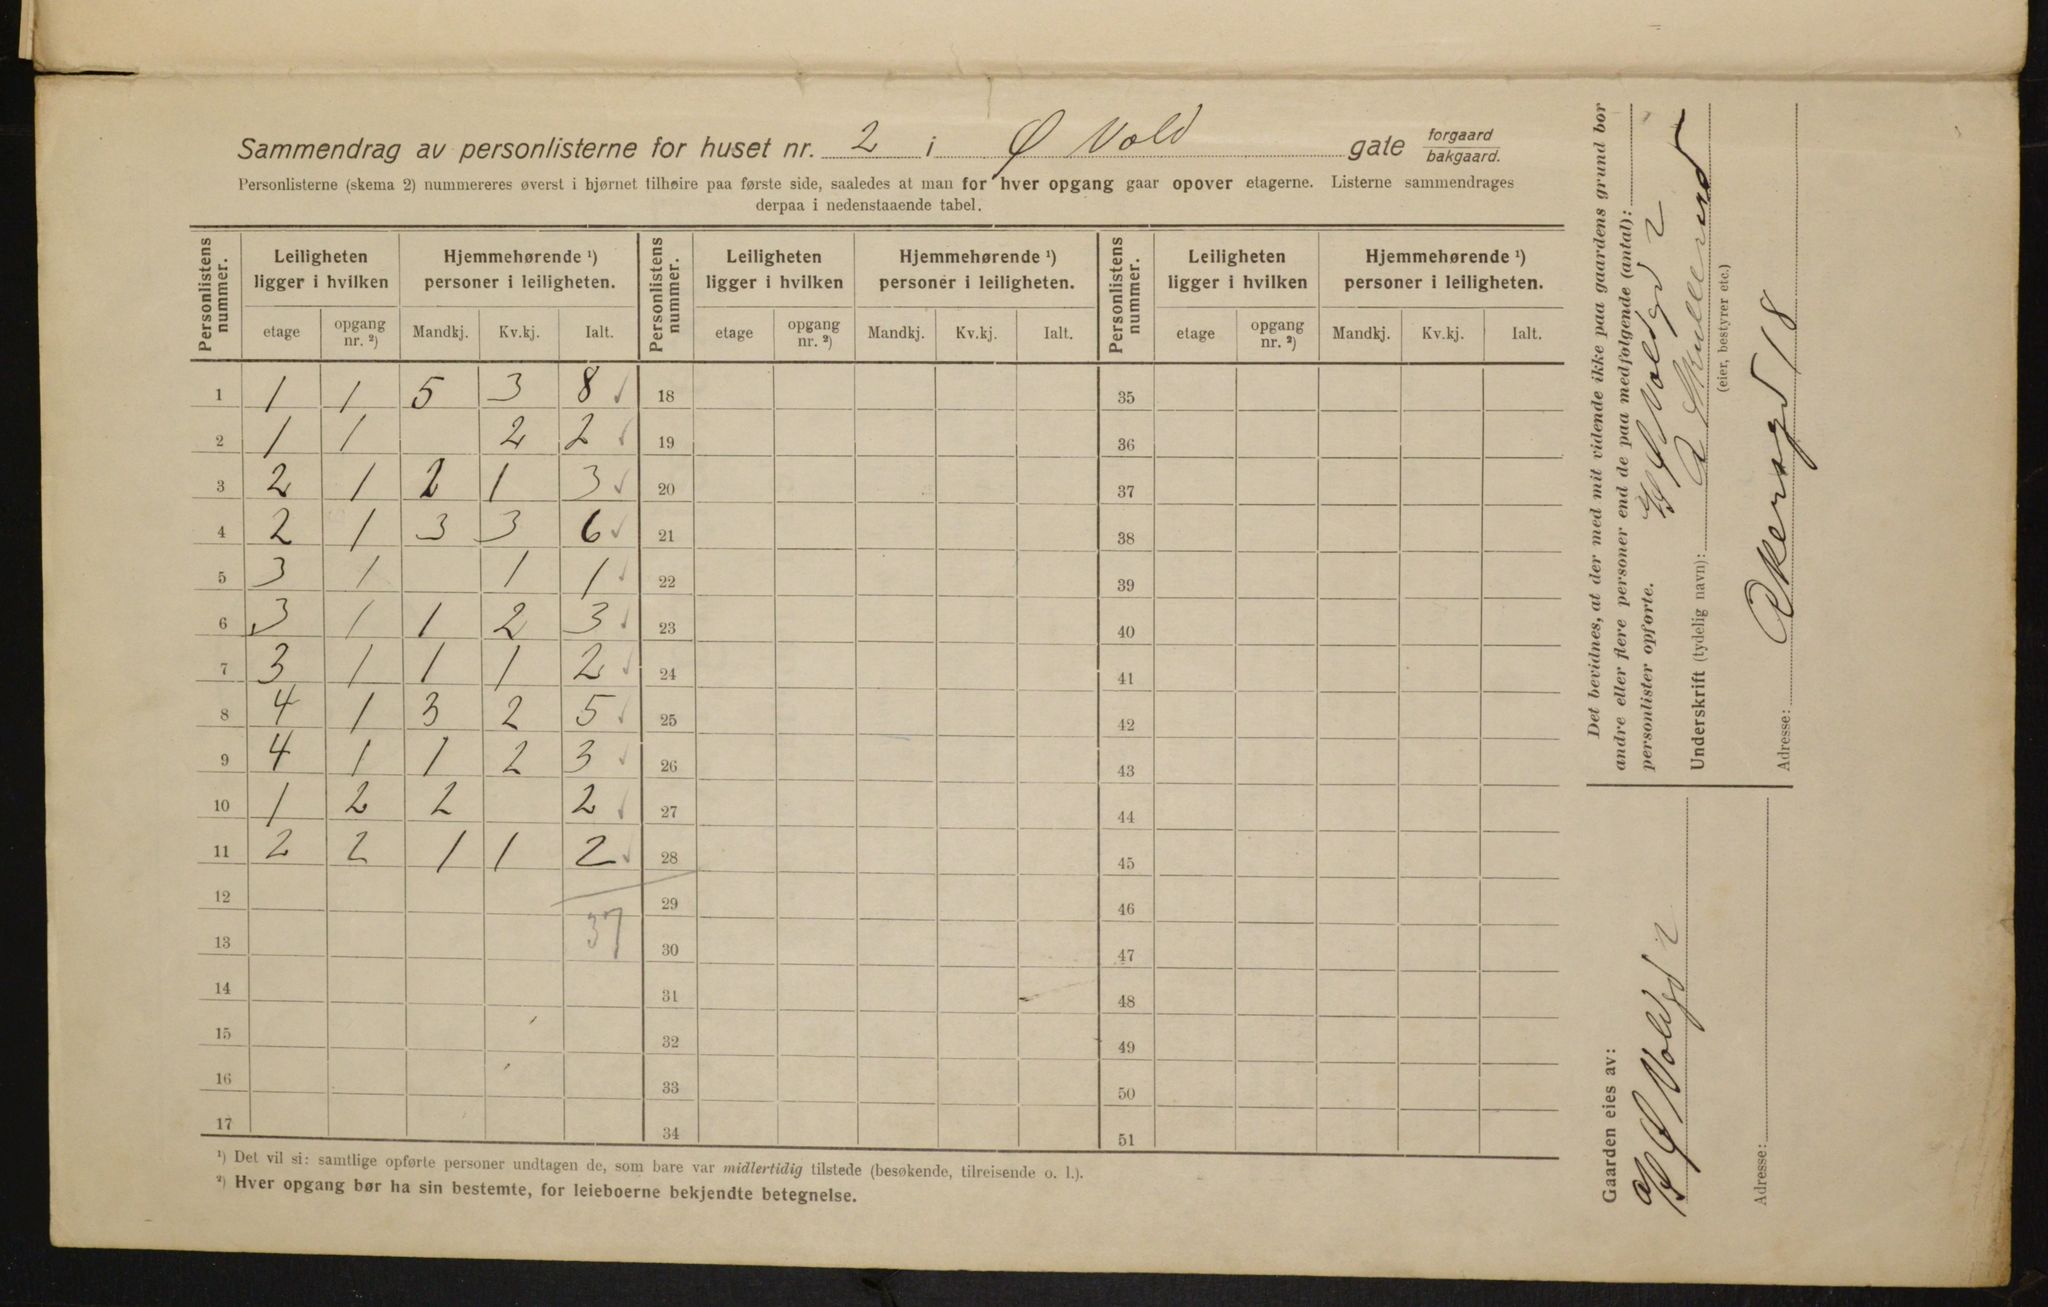 Sammendrag av personlisterne for huset nr. 2 i Ø Vold gate forgaard bakgaard.
Personlisterne (skema 2) nummereres øverst i hjørnet tilhøire paa første side, saaledes at man for hver opgang gaar opover etagerne. Listerne sammendrages
derpaa i nedenstaaende tabel.
Personlistens nummer. Leiligheten ligger i hvilken Hjemmehørende ¹) personer i leiligheten. Personlistens nummer. Leiligheten ligger i hvilken Hjemmehørende ¹) personer i leiligheten. Personlistens nummer. Leiligheten ligger i hvilken Hjemmehørende ¹) personer i leiligheten.
etage opgang nr. ²) Mandkj. Kv.kj. Ialt. etage opgang nr. ²) Mandkj. Kv.kj. Ialt. etage opgang nr. ²) Mandkj. Kv.kj. Ialt.
1 1 1 5 3 8 ✓ 18 35
2 1 1 2 2 ✓ 19 36
3 2 1 2 1 3 ✓ 20 37
4 2 1 3 3 6 ✓ 21 38
5 3 1 1 1 ✓ 22 39
6 3 1 1 2 3 ✓ 23 40
7 3 1 1 1 2 ✓ 24 41
8 4 1 3 2 5 ✓ 25 42
9 4 1 1 2 3 ✓ 26 43
10 1 2 2 2 ✓ 27 44
11 2 2 1 1 2 ✓ 28 45
12 29 46
13 37 30 47
14 31 48
15 32 49
16 33 50
17 34 51
¹) Det vil si: samtlige opførte personer undtagen de, som bare var midlertidig tilstede (besøkende, tilreisende o. l.).
²) Hver opgang bør ha sin bestemte, for leieboerne bekjendte betegnelse.
Det bevidnes, at der med mit vidende ikke paa gaardens grund bor
andre eller flere personer end de paa medfølgende (antal):
personlister opførte.
Ø Voldgd 2
Underskrift (tydelig navn):
(eier, bestyrer etc.)
Adresse: Akersgd 18
Gaarden eies av:
A/S Ø Voldgd 2
Adresse: